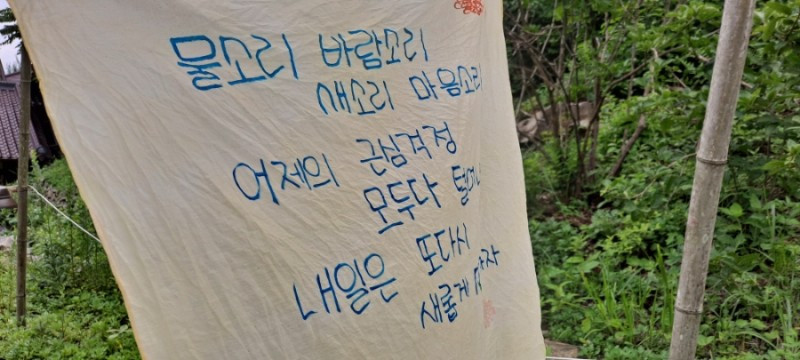 물소리 바람소리
새소리 마음소리
어제의 근심걱정
모두다
내일은 또다시
새롭게